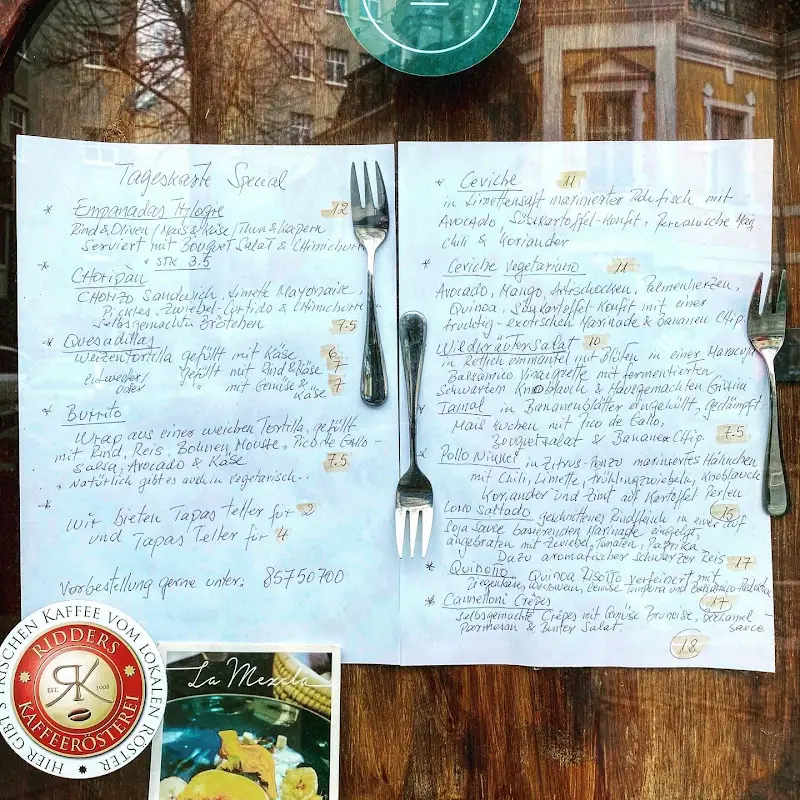 Tageskarte Special
* Empanadas Trylogie 12
Rind & Oliven / Mais & Käse / Thun & Kapern
Serviert mit Bouquet Salat & Chimichurri
* STK 3.5
* CHoripàn
CHORIZO Sandwich, Limette Mayonaise,
Pickles, Zwiebel-Curtido & CHimichurri
Selbstgemachte Brötchen 7.5
* Quesadillas
Weizentortilla gefüllt mit Käse 6
entweder/ gefüllt mit Rind & Käse 7
oder " mit Gemüse & Käse 7
* Burrito
Wrap aus einer weichen Tortilla, gefüllt
mit Rind, Reis, Bohnen Mousse, Pico de Gallo -
Salsa, Avocado & Käse 7.5
* Natürlich gibt es auch in Vegetarisch..
* Wir bieten Tapas Teller für 2
und Tapas Teller für 4
Vorbestellung gerne unter: 85750700
* Ceviche 11
in Limettensaft marinierter Thunfisch mit
Avocado, Süsskartoffel-Konfit, Peruanische Mais,
Chili & Koriander
* Ceviche Vegetariano 11
Avocado, Mango, Artischocken, Palmenherzen,
Quinoa, Süsskartoffel-Konfit mit einer
fruchtig-exotischen Marinade & Bananen Chip
* Wildkräutersalat 10
in Rettich ummantel mit Blüten in einer Maracuja
Balsamico Vinaigrette mit fermentierten
Schwarzen Knoblauch & Hausgemachten Grissini
* Tamal in Bananenblätter eingehüllt, Gedämpft
Mais Kuchen mit Pico de Gallo,
Bouquetsalat & Bananen Chip. 7.5
* Pollo Nikkei in Zitrus-Ponzu mariniertes Hähnchen
mit Chili, Limette, Frühlingzwiebeln, Knoblauch
Koriander und Zimt auf Kartoffel Perlen 15
* Lomo Saltado geschnittenes Rindfleisch in einer auf
Soja Sauce basierenden Marinade eingelegt,
angebraten mit Zwiebel, Tomaten, Paprika
Dazu aromatischer schwarzer Reis 17
* Quinotto Quinoa Risotto verfeinert mit
Ziegenkäse, Weisswein, Gemüse Tempura und Balsamico-Reduktion
17
* Cannelloni Crêpes
Selbstgemachte Crêpes mit Gemüse Brunoise, Bechamel
Parmesan & Bunter Salat. sauce
18
HIER GIBT'S FRISCHEN KAFFEE VOM LOKALEN RÖSTER
RIDDERS
EST. RK 2008
KAFFEERÖSTEREI
La Mezcla